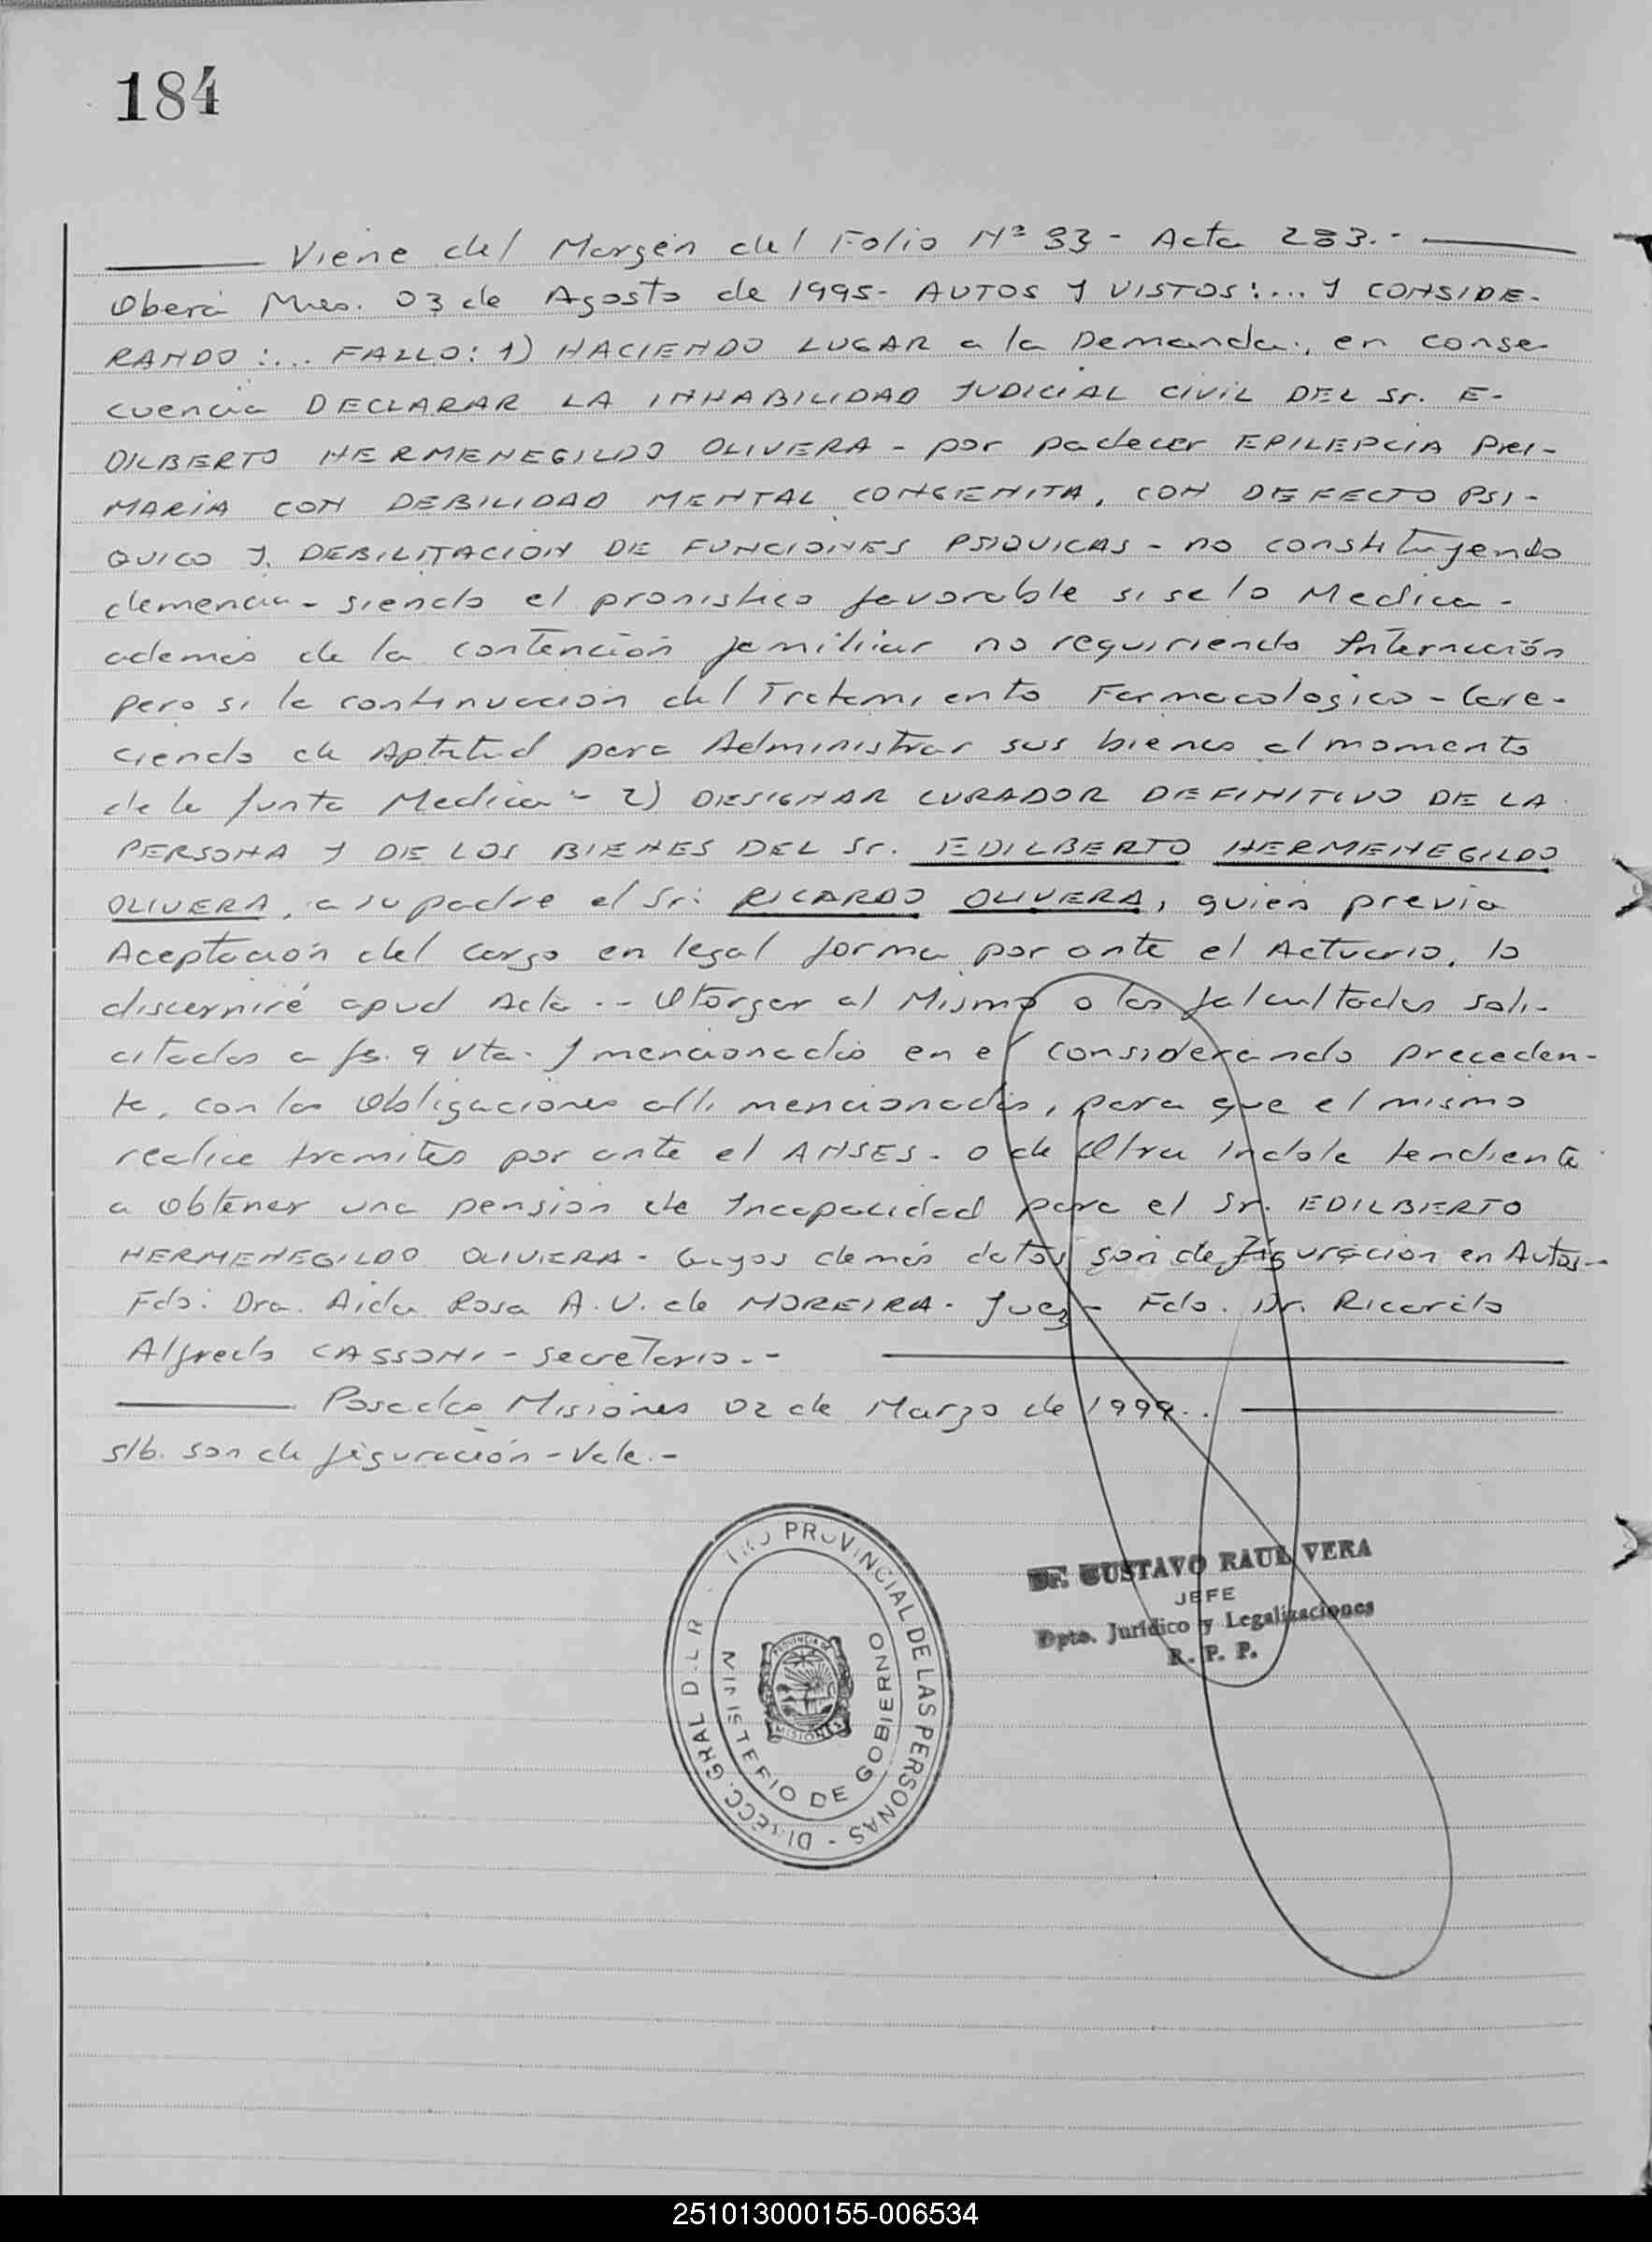 184
Viene del Margén del Folio Nº 93 - Acta 283.-
Oberá Mnes. 03 de Agosto de 1995- AUTOS Y VISTOS:... Y CONSIDE-
RANDO:... FALLO: 1) HACIENDO LUGAR a la Demanda, en conse-
cuencia DECLARAR LA INHABILIDAD JUDICIAL CIVIL DEL Sr. E-
DILBERTO HERMENEGILDO OLIVERA - por padecer EPILEPCIA PRI-
MARIA CON DEBILIDAD MENTAL CONGENITA, CON DEFECTO PSI-
QUICO Y DEBILITACION DE FUNCIONES PSIQUICAS - no constituyendo
demencia - siendo el pronistico favorable si se lo Medica -
además de la contención familiar no requiriendo Internación
pero si la continuación del Tratamiento Farmacologico - Care-
ciendo de Aptitud para Administrar sus bienes al momento
de la Junta Medica - 2) DESIGNAR CURADOR DEFINITIVO DE LA
PERSONA Y DE LOS BIENES DEL Sr. EDILBERTO HERMENEGILDO
OLIVERA, a su padre el Sr: RICARDO OLIVERA, quién previa
Aceptación del cargo en legal forma por ante el Actuario, lo
discerniré apud Acta .- Otorgar al Mismo o las falcultades soli-
citadas a fs. 9 vta. y mencionadas en el considerando preceden-
te, con las Obligaciones alli mencionadas, para que el mismo
realice tramites por ante el ANSES. o de Otra Indole tendiente
a Obtener una pensión de Incapacidad para el Sr. EDILBERTO
HERMENEGILDO OLIVERA - Cuyos demás datos son de figuración en Autos-
Fdo: Dra. Aida Rosa A. V. de MOREIRA - Juez - Fdo. Dr. Ricardo
Alfredo CASSONI - Secretario.-
Posadas Misiones 02 de Marzo de 1999.
s/b. son de figuración - Vale.-
PROVINCIAL DE LAS PERSONAS - DIRECC. GRAL D L R
MINISTERIO DE GOBIERNO
PROVINCIA DE
MISIONES
Dr. GUSTAVO RAUL VERA
JEFE
Dpto. Jurídico y Legalizaciones
R. P. P.
251013000155-006534